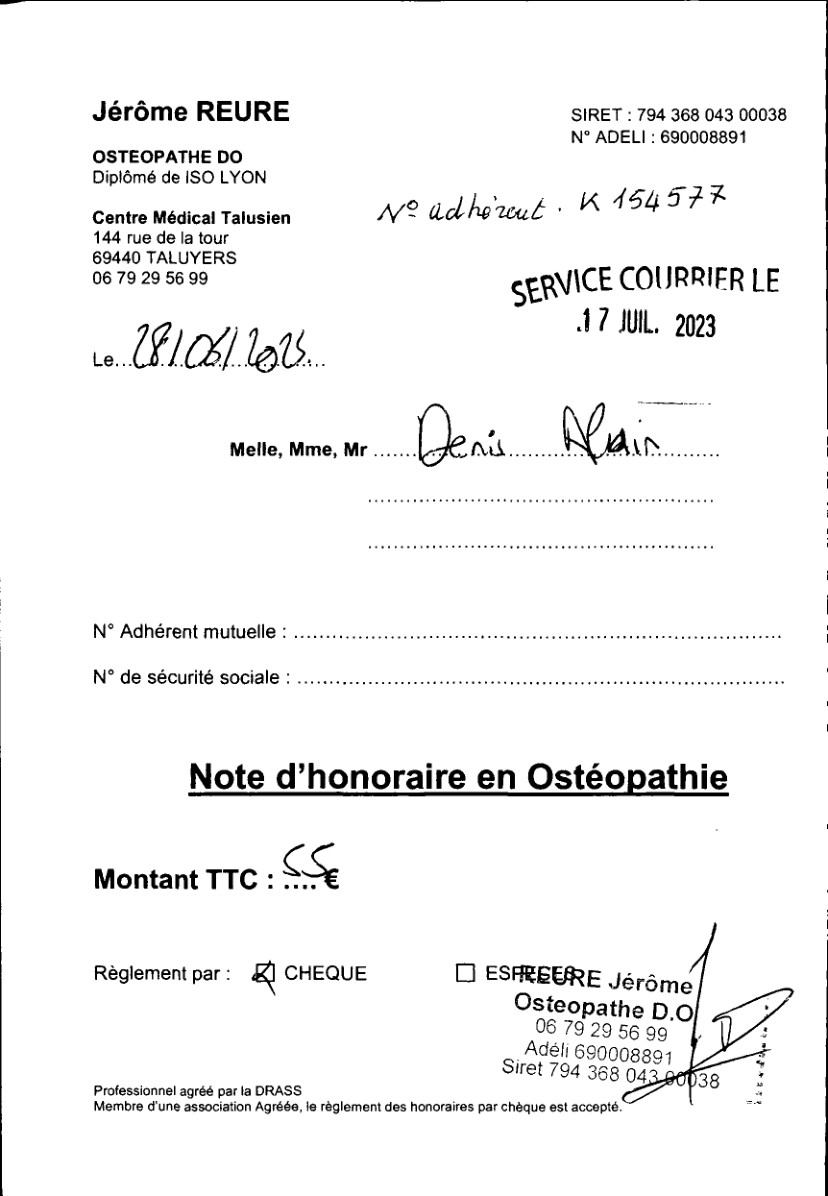 Jérôme REURE
SIRET : 794 368 043 00038
N° ADELI : 690008891
OSTEOPATHE DO
Diplômé de ISO LYON
N° adhérent. K 154577
Centre Médical Talusien
144 rue de la tour
69440 TALUYERS
06 79 29 56 99
SERVICE COURRIER LE
17 JUIL. 2023
Le...28/06/2023...
Melle, Mme, Mr ...... Denis Alain
N° Adhérent mutuelle :
N° de sécurité sociale :
Note d'honoraire en Ostéopathie
Montant TTC : 55 €
Règlement par : CHEQUE ESPECES
REURE Jérôme
Osteopathe D.O
06 79 29 56 99
Adéli 690008891
Siret 794 368 043 00038
Professionnel agréé par la DRASS
Membre d'une association Agréée, le règlement des honoraires par chèque est accepté.